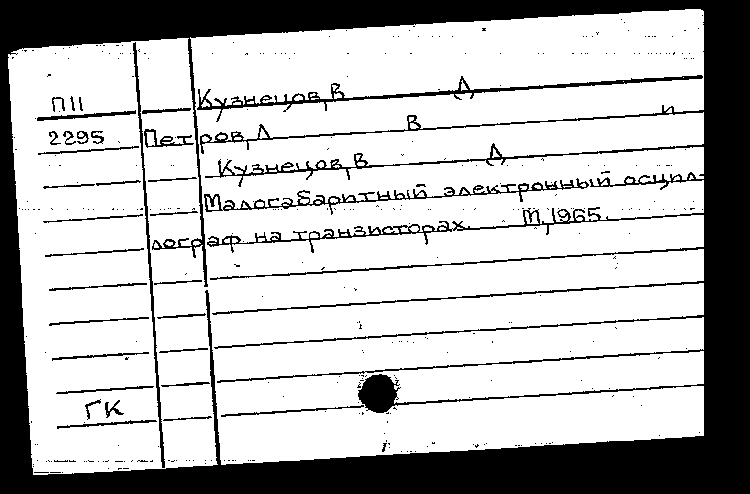 П11 Кузнецов, В Д
2295 Петров, Л В и
Кузнецов, В Д
Малогабаритный электронный осцил-
лограф на транзисторах. М, 1965.
ГК